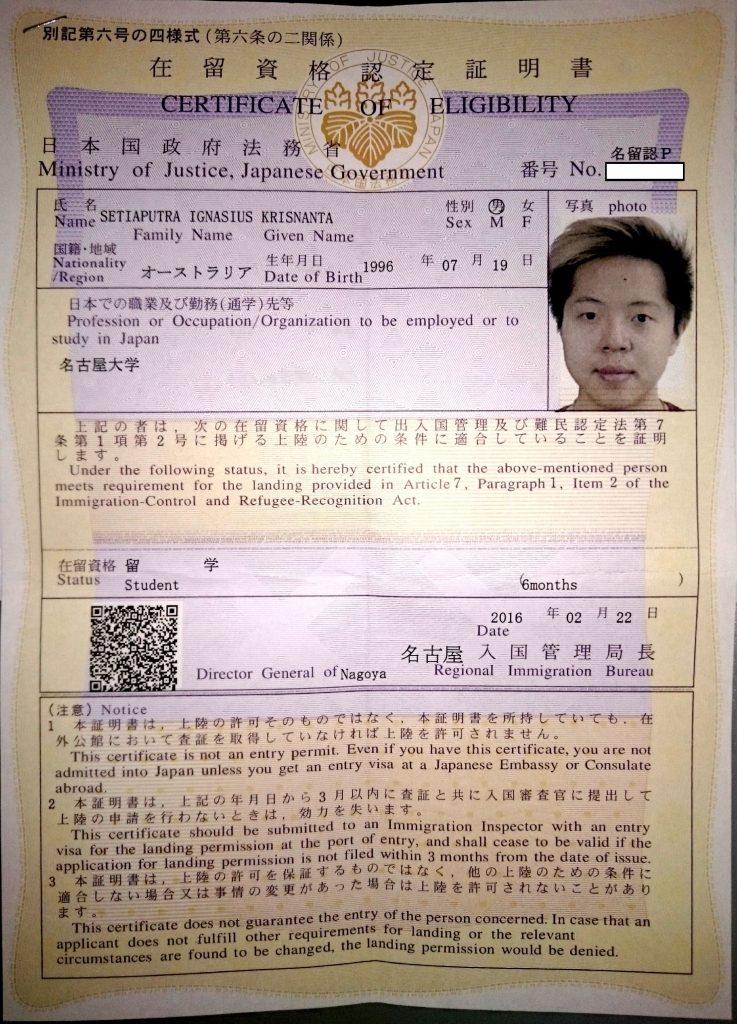 別記第六号の四様式(第六条の二関係)
在留資格認定証明書
MINISTRY OF JUSTICE, JAPAN
CERTIFICATE OF ELIGIBILITY
日本国政府法務省
Ministry of Justice, Japanese Government
名留認P
番号 No.
氏 名
Name SETIAPUTRA IGNASIUS KRISNANTA
Family Name Given Name
性別 男 女
Sex M F
写真 photo
国籍・地域
Nationality
/Region オーストラリア
生年月日
Date of Birth 1996 年 07 月 19 日
日本での職業及び勤務(通学)先等
Profession or Occupation/Organization to be employed or to
study in Japan
名古屋大学
上記の者は,次の在留資格に関して出入国管理及び難民認定法第7
条第1項第2号に掲げる上陸のための条件に適合していることを証明
します。
Under the following status, it is hereby certified that the above-mentioned person
meets requirement for the landing provided in Article 7, Paragraph 1, Item 2 of the
Immigration-Control and Refugee-Recognition Act.
在留資格 留 学
Status Student (6months )
2016 年 02 月 22 日
Date
名古屋 入国管理局長
Director General of Nagoya Regional Immigration Bureau
(注意) Notice
1 本証明書は,上陸の許可そのものではなく,本証明書を所持していても,在
外公館において査証を取得していなければ上陸を許可されません。
This certificate is not an entry permit. Even if you have this certificate, you are not
admitted into Japan unless you get an entry visa at a Japanese Embassy or Consulate
abroad.
2 本証明書は,上記の年月日から3月以内に査証と共に入国審査官に提出して
上陸の申請を行わないときは,効力を失います。
This certificate should be submitted to an Immigration Inspector with an entry
visa for the landing permission at the port of entry, and shall cease to be valid if the
application for landing permission is not filed within 3 months from the date of issue.
3 本証明書は,上陸の許可を保証するものではなく,他の上陸のための条件に
適合しない場合又は事情の変更があった場合は上陸を許可されないことがあり
ます。
This certificate does not guarantee the entry of the person concerned. In case that an
applicant does not fulfill other requirements for landing or the relevant
circumstances are found to be changed, the landing permission would be denied.